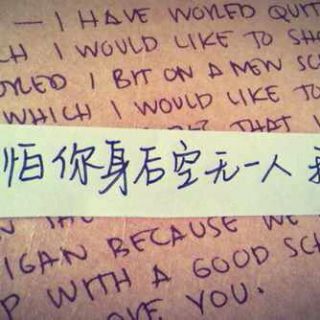 — I HAVE WORLED QUIT
CH I WOULD LIKE TO SHO
ORLED I BIT ON A NEW SC
WHICH I WOULD LIKE TO
THAT I
怕你身后空无一人
IGAN BECAUSE WE
P WITH A GOOD SC
OVE YOU.